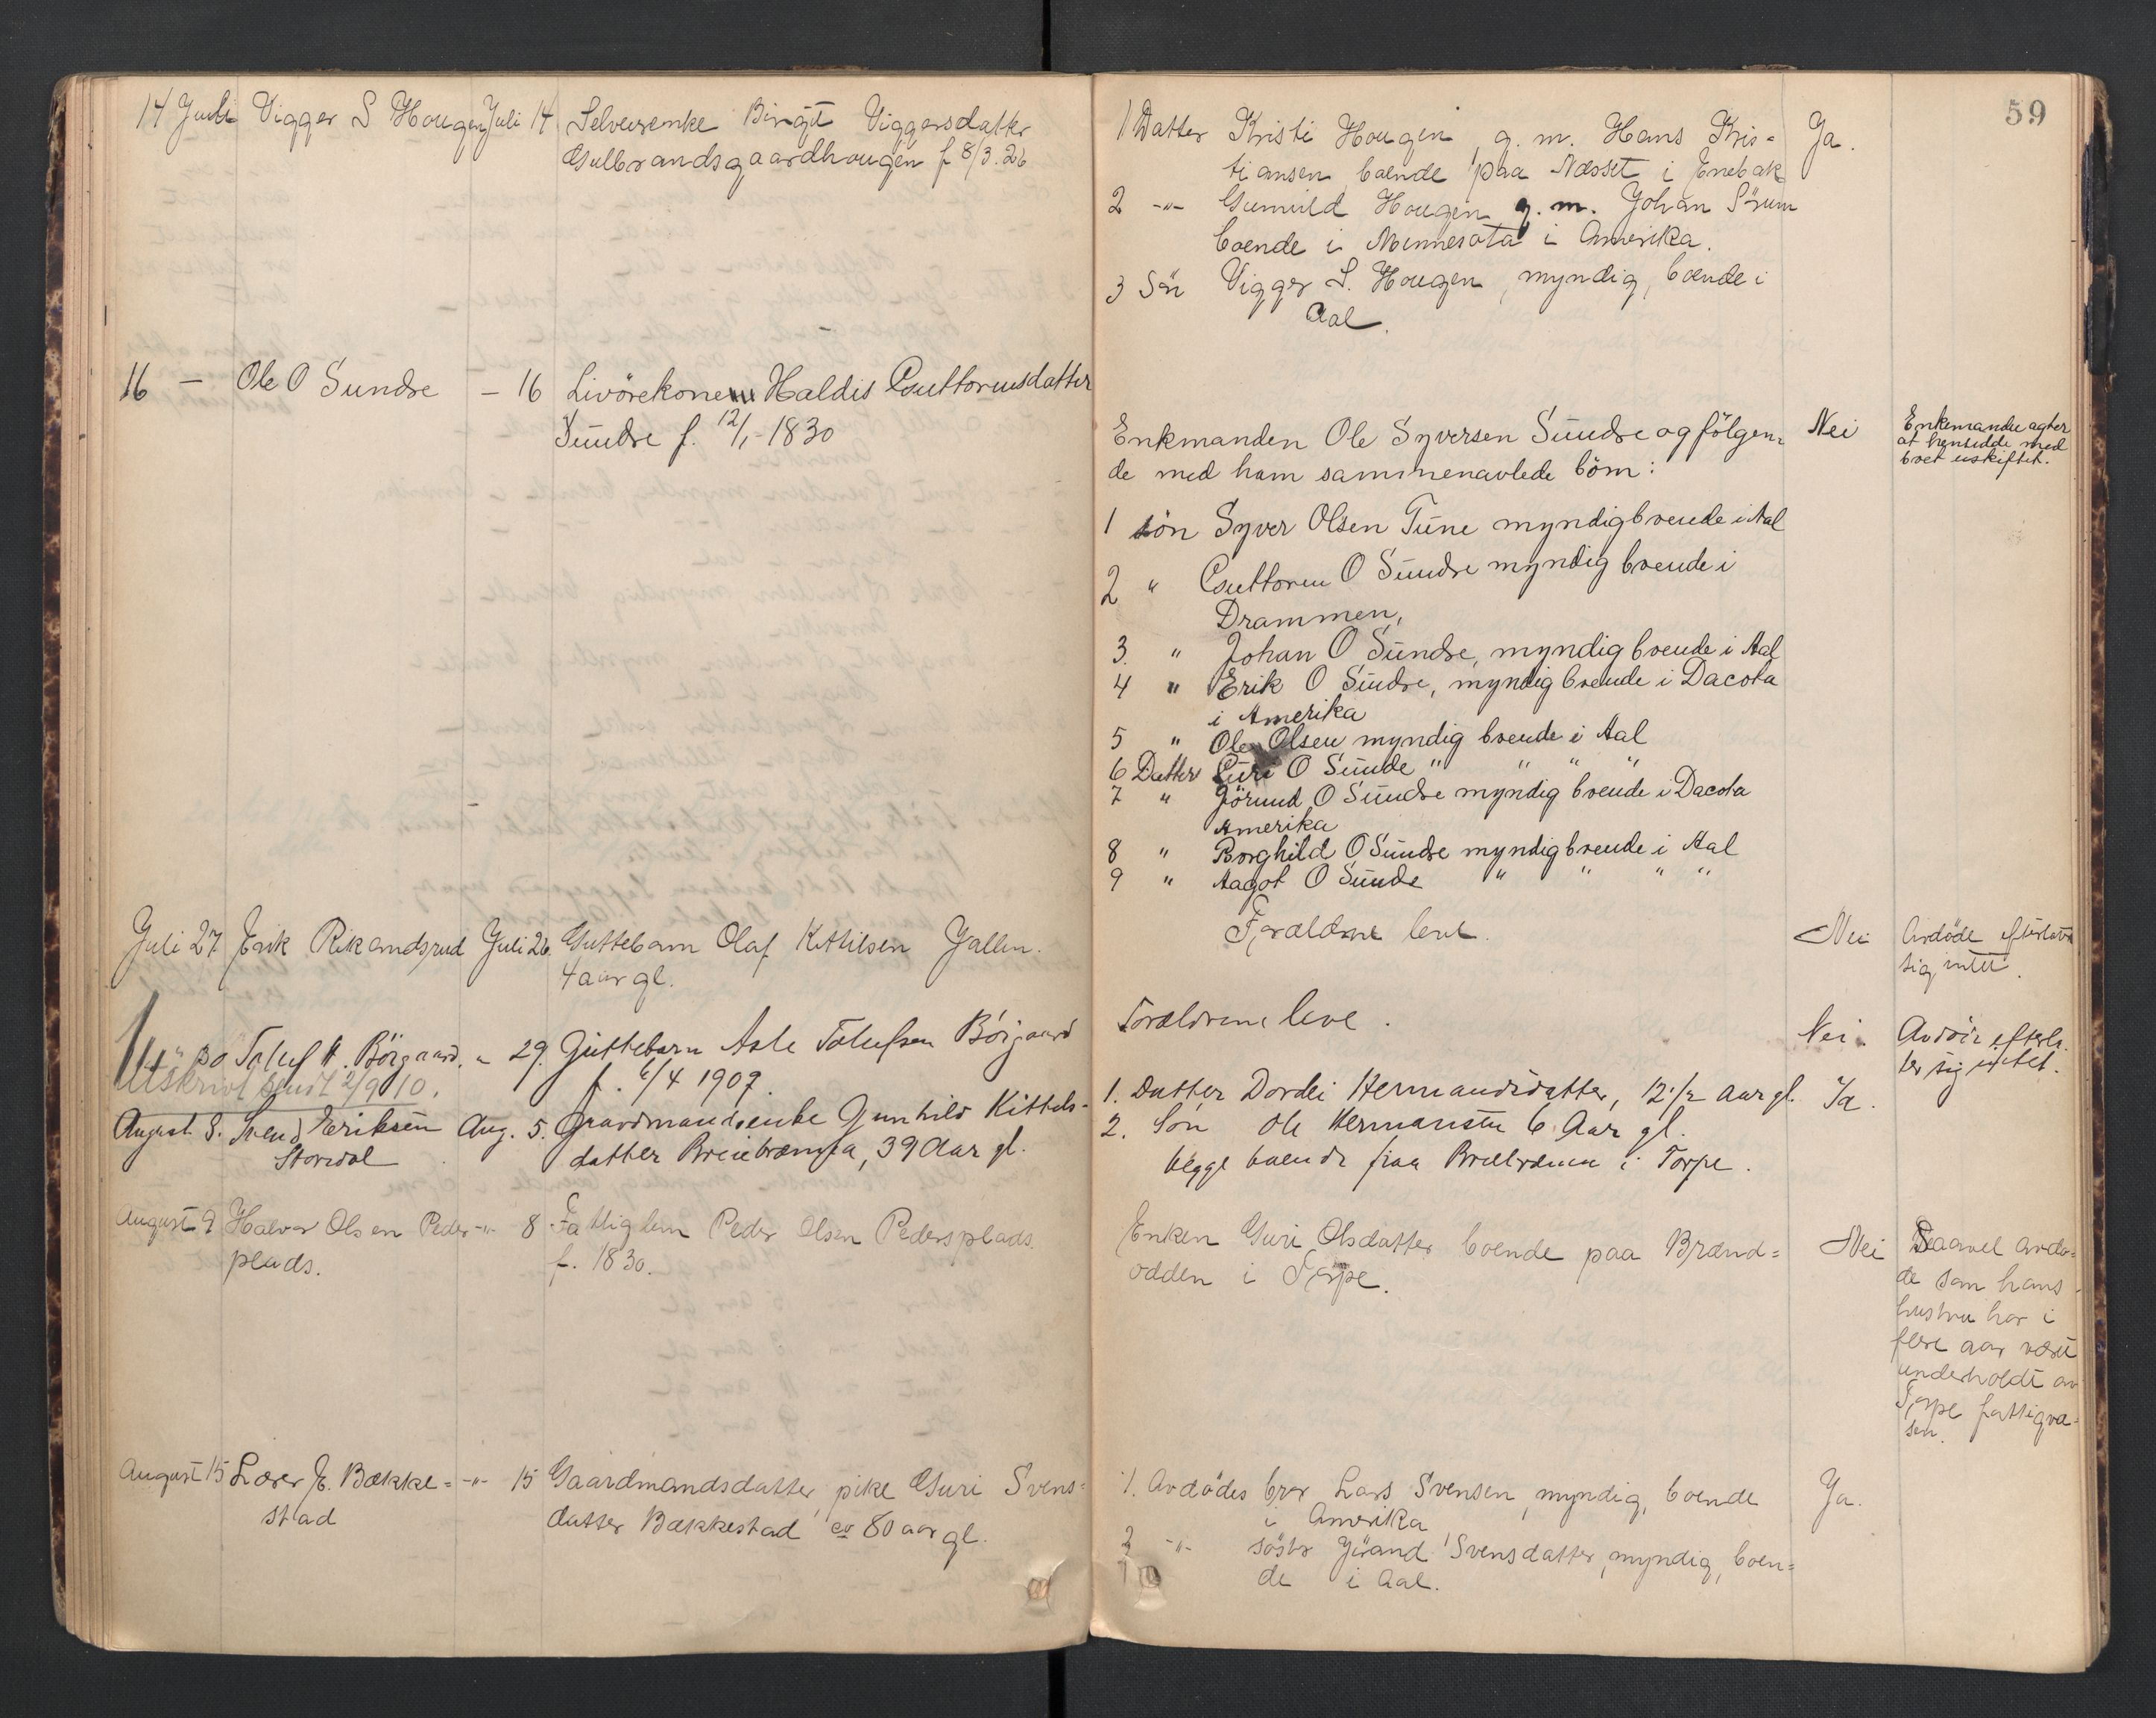 59
14 Juli Vigger S Hougen Juli 14 Selveierenke Birgit Viggersdatter
Gulbrandsgaardhougen f 8/3.26
1 Datter Kristi Hougen, g. m. Hans Kris=
tiansen boende paa Næsset i Enebak
Ja.
2 -"- Gunnild Hougen g. m. Johan Sørum
boende i Minnesota i Amerika.
3 Søn Vigger S. Hougen, myndig, boende i
Aal.
16 — Ole O Sundre — 16 Livörekone Haldis Guttormsdatter
Sundre f. 12/1-1830
Enkmanden Ole Syversen Sundre og følgen=
de med ham sammenavlede börn:
Nei
Enkemanden agter
at hensidde med
boet uskiftet.
1 sön Syver Olsen Tune myndig boende i Aal
2 " Guttorm O Sundre myndig boende i
Drammen,
3. " Johan O Sundre, myndig boende i Aal
4 " Erik O Sundre, myndig boende i Dacota
i Amerika
5 " Ole Olsen myndig boende i Aal
6 Datter Guri O Sunde " " " "
7 " Jörund O Sundre myndig boende i Dacota
Amerika
8 " Borghild O Sundre myndig boende i Aal
9 " Aagot O Sunde " " " "
Juli 27 Erik Rikandsrud Juli 26. Guttebarn Olaf Kittilsen Jallen.
4 aar gl.
Forældrene leve.
Nei
Avdöde efterlater
sig intet.
" 30 Toluf A. Börgaard. " 29. Guttebarn Asle Tolufsen Börgaard
f. 6/4 1909.
Forældrene leve.
Nei.
Avdöde efterla-
ter sig intet.
Utskrivt sendt 2/9 10.
August 8. Svend Eriksen Aug. 5. Gaardmandsenke Gunhild Kittels-
Stordal
datter Breiebrænna, 39 Aar gl.
1. Datter Dordei Hermandsdatter, 12 1/2 aar gl. Ja.
2. Sön Ole Hermansen 6 Aar gl.
begge boende paa Breibrænna i Torpe.
August 9 Halvor Olsen Peders- -"- 8 Fattiglem Peder Olsen Pedersplads.
plads.
f. 1830.
Enken Guri Olsdatter boende paa Brænd=
odden i Torpe.
Nei
Saavel avdö-
de som hans
hustru har i
flere aar været
underholdt av
Torpe fattigvæ-
sen.
August 15 Lærer E. Bække= -"- 15 Gaardmandsdatter, pike Guri Svens=
stad
datter Bækkestad ca 80 aar gl.
1. Avdödes bror Lars Svensen, myndig, boende
i Amerika
Ja.
2 -"- söster Jörand Svensdatter, myndig, boen=
de i Aal.